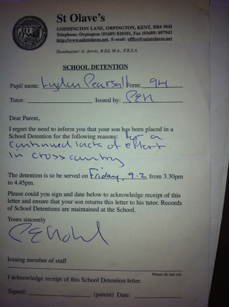 St Olave's
GODDINGTON LANE, ORPINGTON, KENT, BR6 9SH
Telephone: Orpington (01689) 820101, Fax (01689) 897943
Headmaster: A. Jarvis, B.Ed, M.A., F.R.S.A.
SCHOOL DETENTION
Pupil name: Form: 9H
Tutor: Issued by: PEH
Dear Parent,
I regret the need to inform you that your son has been placed in a
School Detention for the following reasons: for a
continued lack of effort
in cross country
The detention is to be served on Friday, 9.2 from 3.30pm
to 4.45pm.
Please could you sign and date below to acknowledge receipt of this
letter and ensure that your son returns this letter to his tutor. Records
of School Detentions are maintained at the School.
Yours sincerely
Issuing member of staff
Please do not cut
I acknowledge receipt of this School Detention letter.
Signed: (parent) Date: